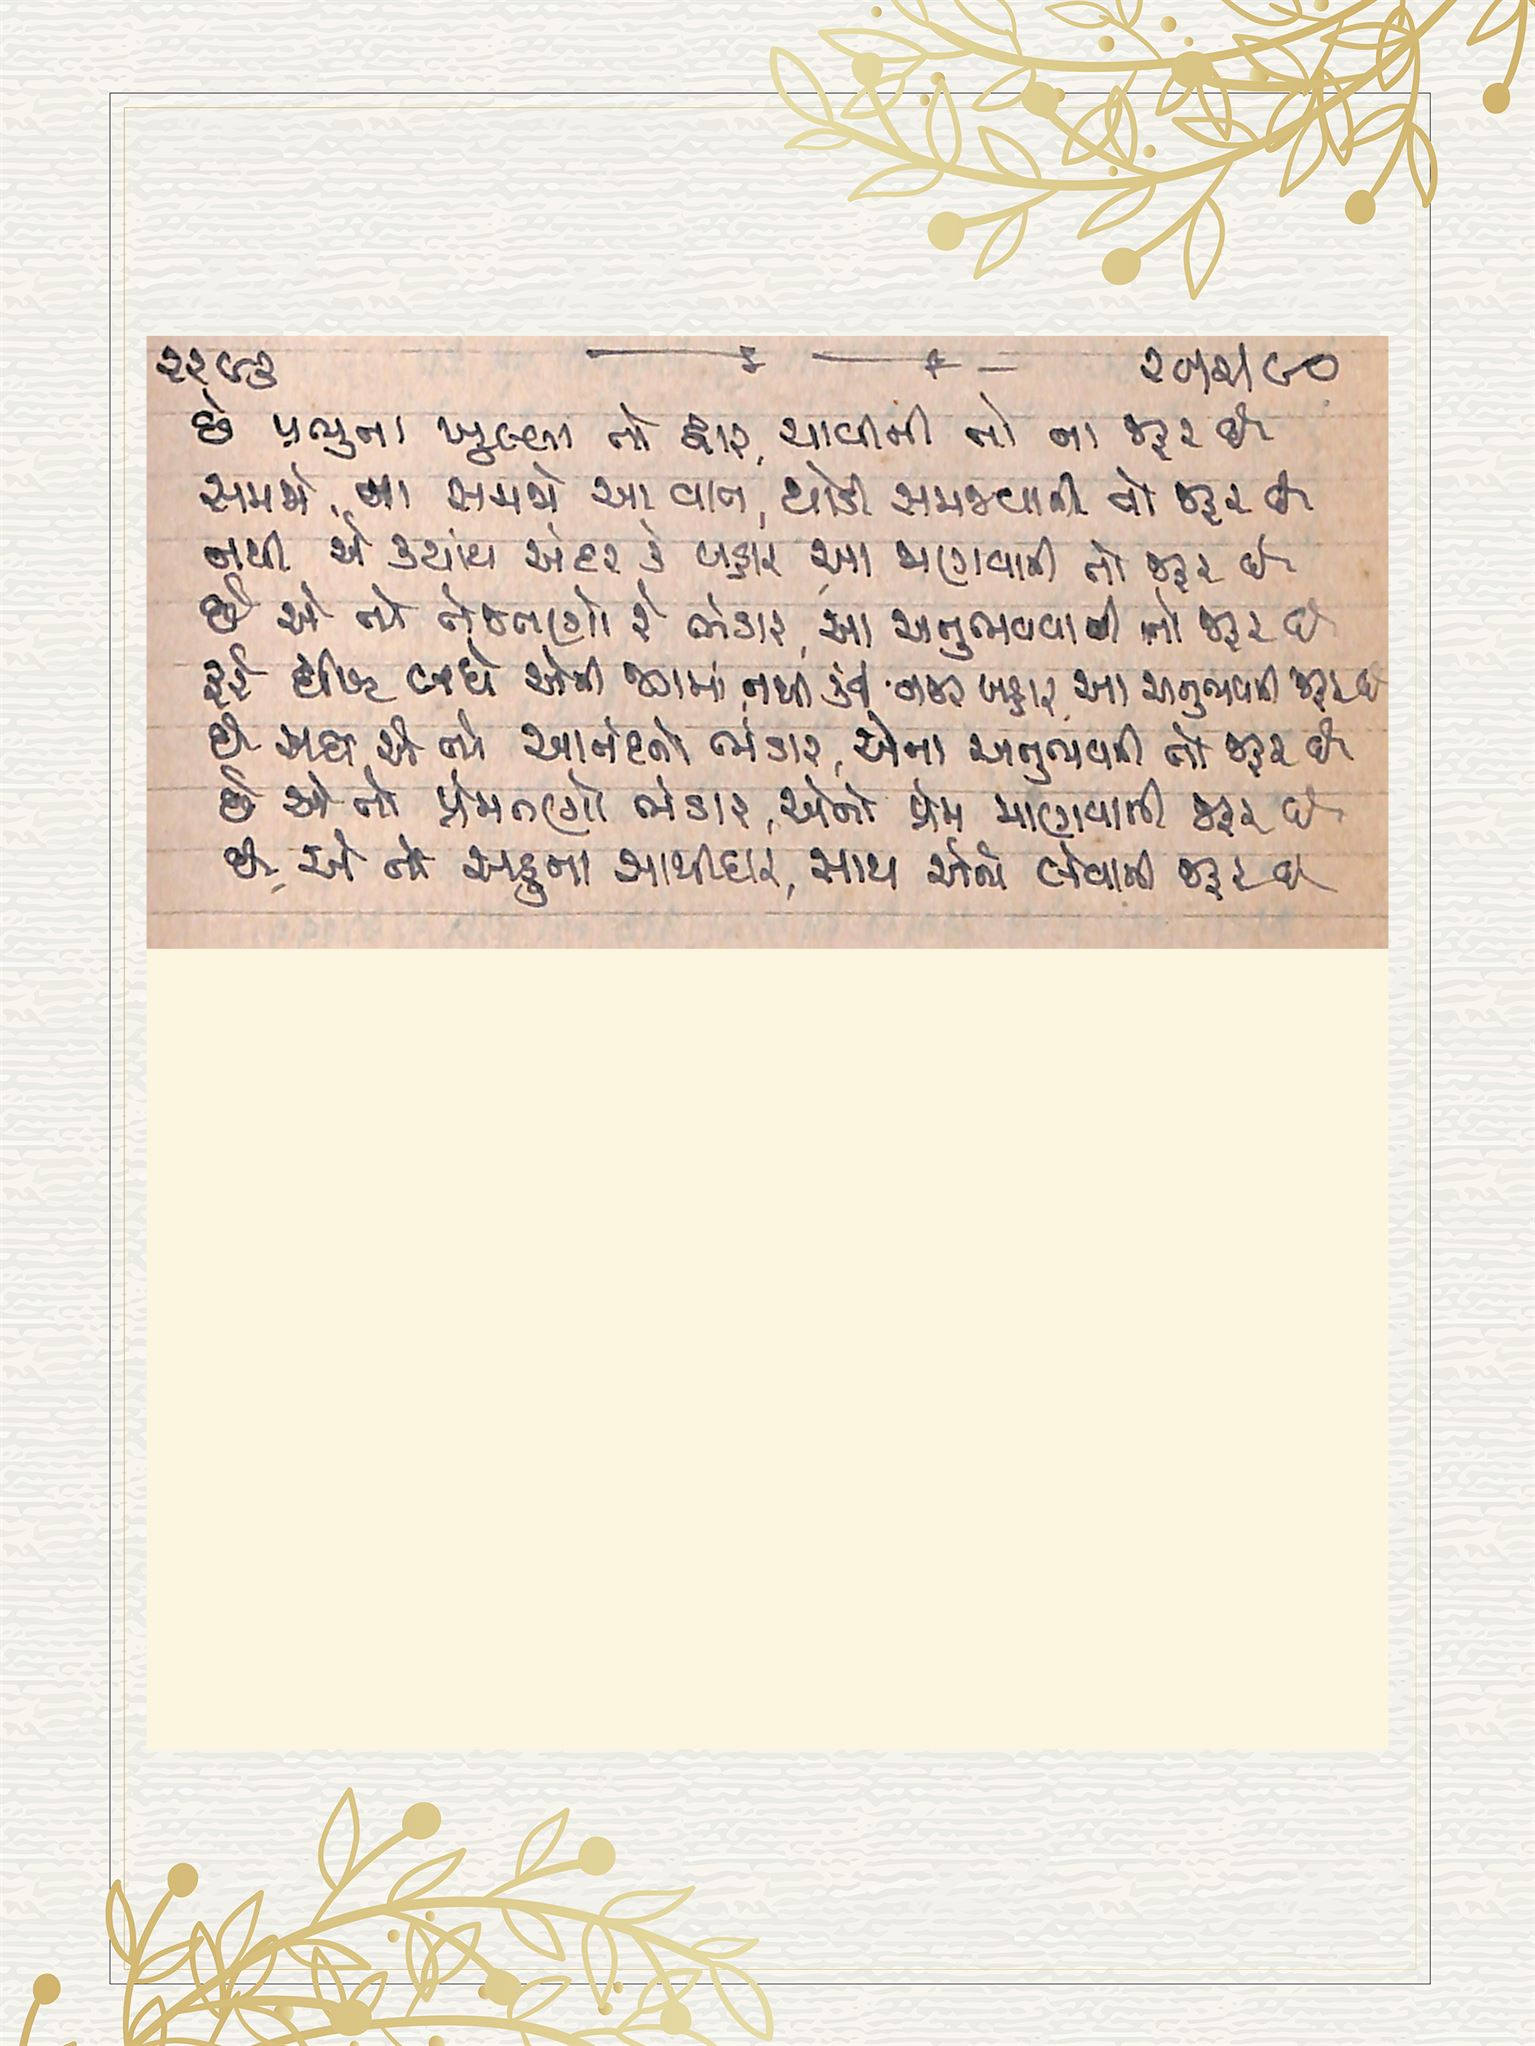 ૨૨૯૩ ૨૫/૨/૯૦
છે પ્રભુના ખુલ્લા તો દ્વાર, ચાવીની તો ના જરૂર છે
સમજો, ના સમજો આ વાત, થોડી સમજવાની તો જરૂર છે
નથી એ ક્યાંય અંદર કે બહાર, આ જાણવાની તો જરૂર છે
છે એ તો તેજતણો રે ભંડાર, આ અનુભવવાની તો જરૂર છે
હરેક ચીજ બધે એની જગમાં નથી કંઈ નજર બહાર, આ અનુભવની જરૂર છે
છે એ તો આનંદનો ભંડાર, એના અનુભવની તો જરૂર છે
છે એ તો પ્રેમતણો ભંડાર, એનો પ્રેમ માણવાની જરૂર છે
છે એ તો સહુના સાથીદાર, સાથ એનો લેવાની જરૂર છે